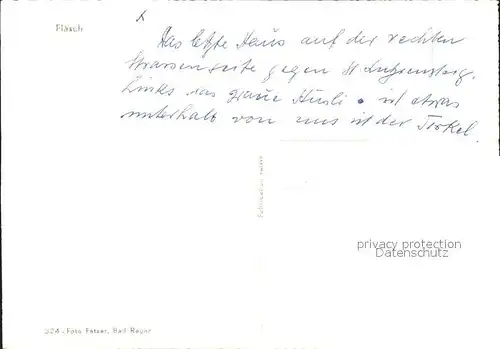 x
Fläsch
Das letzte Haus auf der rechten
Strassenseite gegen St. Luziensteig.
Links das graue Hüsli • ist etwas
unterhalb von uns ist der Torkel.
privacy protection
Datenschutz
324 - Foto Fetzer, Bad Ragaz